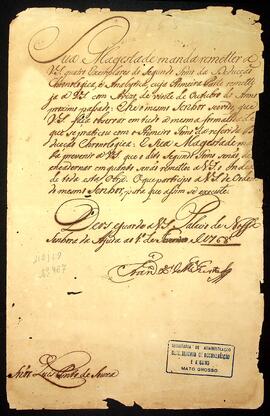 Sua Magestade manda remetter a
V.S. quatro Exemplares do Segundo Tomo da Deducção
Chronologica, e Analytica, cuja Primeira Parte remetti
já a V.S. com Aviso de vinte de Outubro do Anno
proximo passado: E he o mesmo Senhor servido, que
V.S. faça observar em tudo a mesma formalidade
que se praticou com o Primeiro Tomo da referida De
ducção Chronologica: E Sua Magestade man
da prevenir a V.S. que o dito Segundo Tomo
encadernar em quanto senaõ remetter a V.S. o
de toda esta Obra. O que participo a V.S. de Ordem
do mesmo Senhor, para que assim se execute.
Deos guarde a V.S. Palacio de Nossa
Senhora da Ajuda a de de 1768
Snr. Luis Pinto de Souza
SECRETARIA DE ADMINISTRAÇÃO
MATO GROSSO